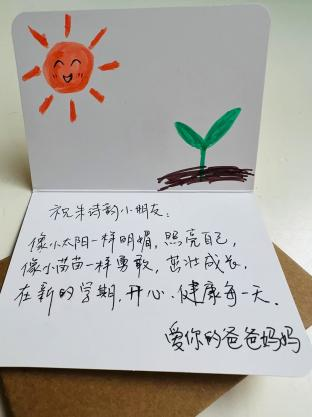 祝朱诗韵小朋友：
像小太阳一样明媚，照亮自己，
像小苗苗一样勇敢，茁壮成长，
在新的学期，开心、健康每一天。
爱你的爸爸妈妈